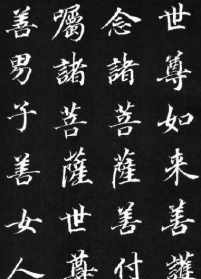 世尊如来善護
念諸菩薩善付
囑諸菩薩世尊
善男子善女人